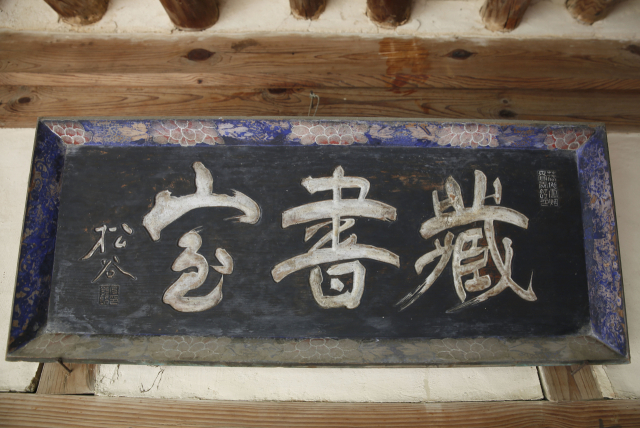 藏書室
松谷